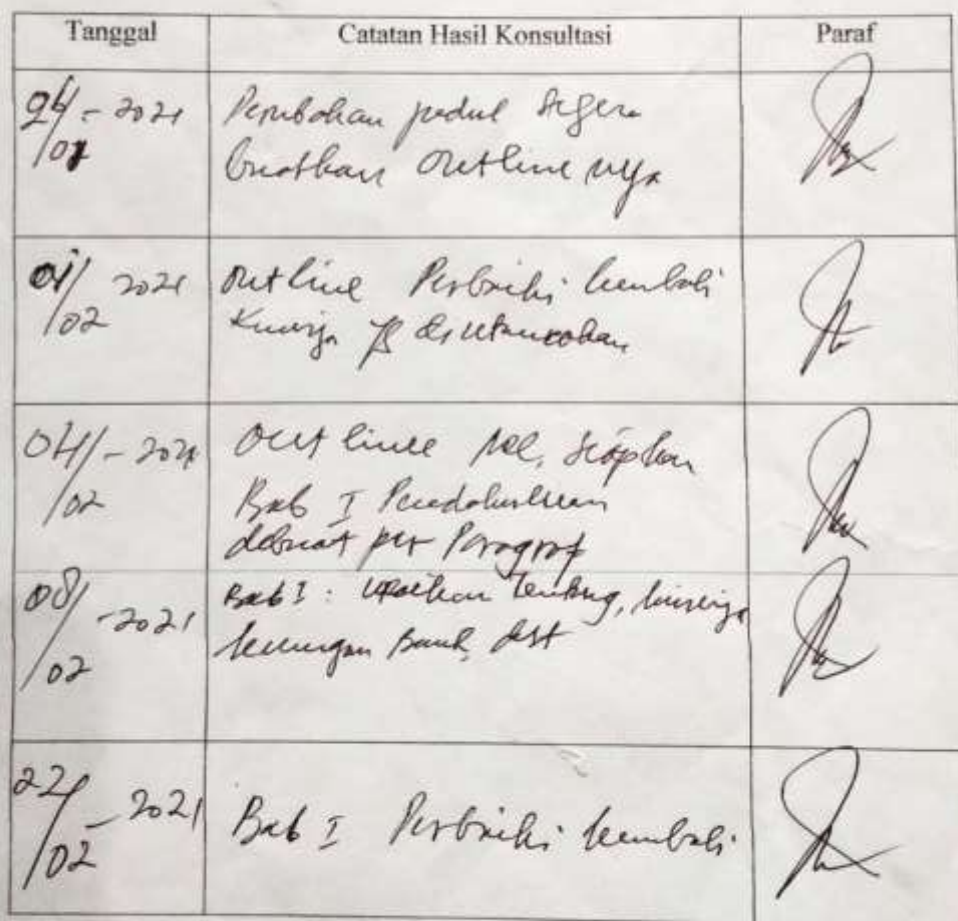 Tanggal Catatan Hasil Konsultasi Paraf
26/01 - 2021 Perubahan judul segera
buatkan outline nya
01/02 2021 outline Perbaiki kembali
Kinerja yg
04/02 - 2021 outline acc, siapkan
Bab I Pendahuluan
dibuat per Paragraf
08/02 - 2021 Bab I: uraikan tentang, kinerja
keuangan Bank, dst
22/02 - 2021 Bab I Perbaiki kembali